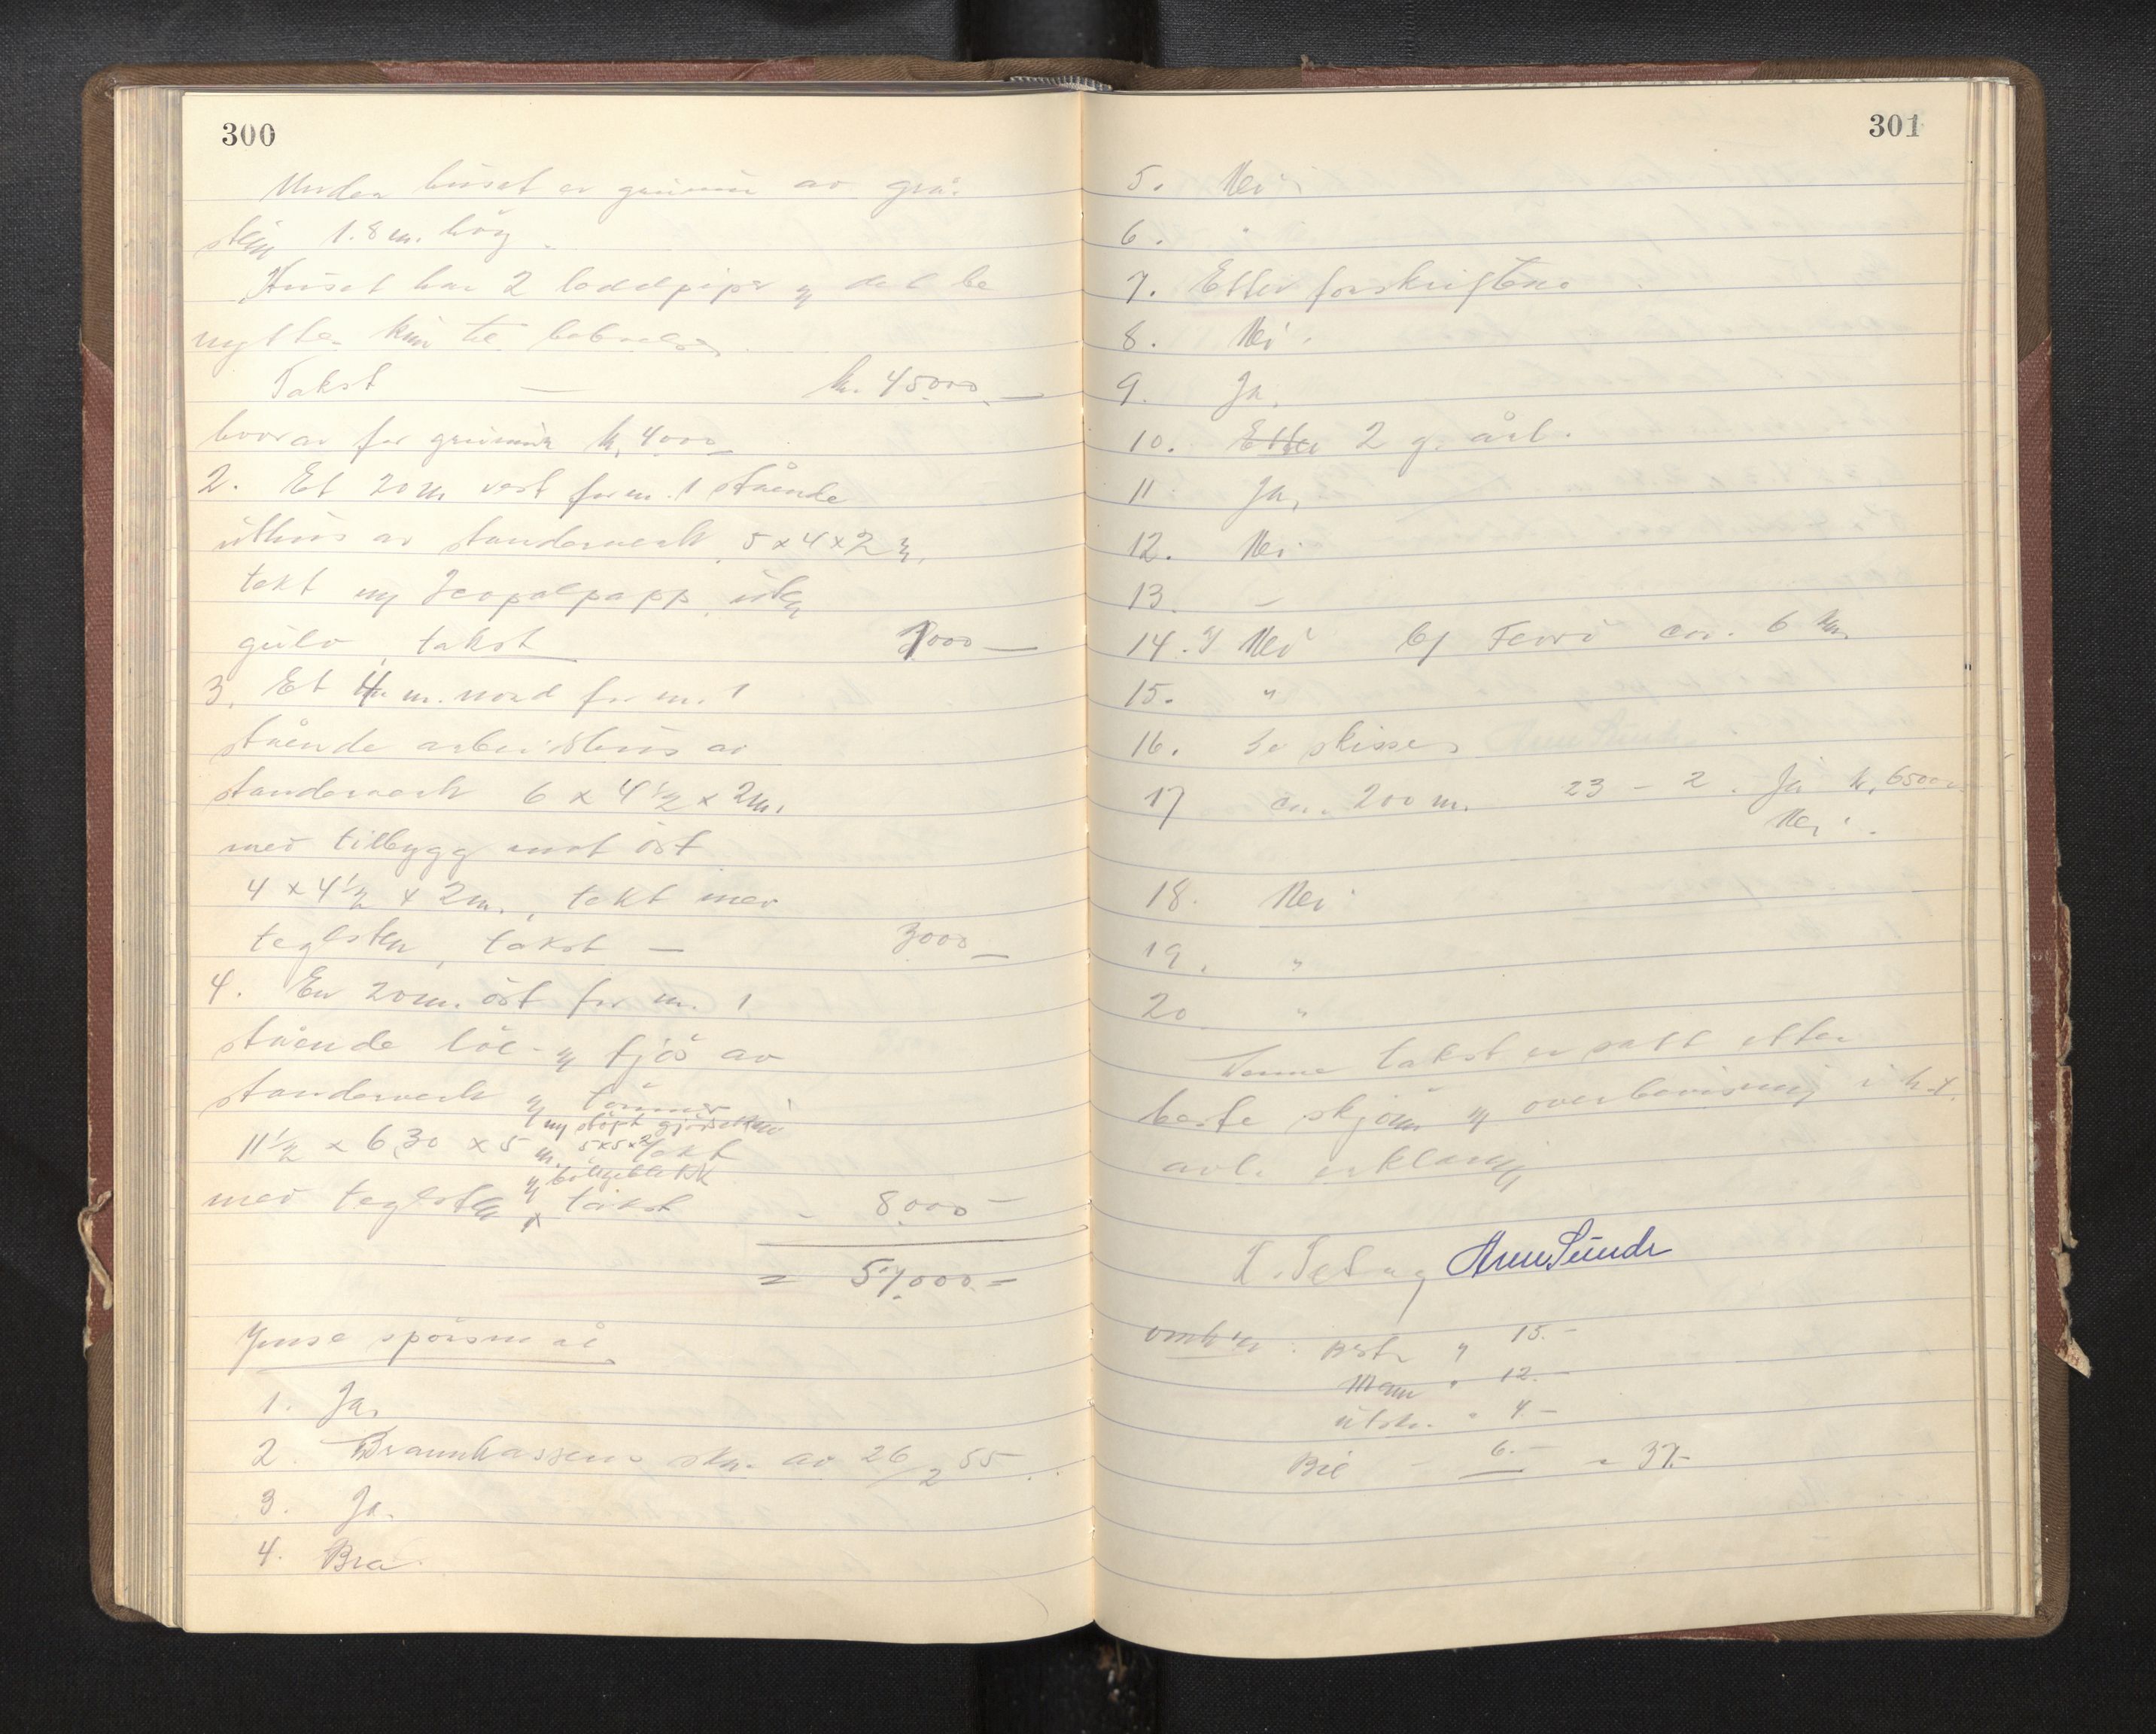 300
Under huset er grunnmur av grå-
stein 1.8 m. höy.
Huset har 2 loddpiper og det be
nyttes kun til beboelse.
Takst — kr. 45000.—
hvorav for grunnmur kr. 4000.—
2. Et 20 m vest for nr. 1 stående
uthus av standerverk 5 x 4 x 2 m.
tekt m/ Icopalpapp, uten
gulv, takst 1000 —
3. Et 4 m. nord for nr. 1
stående arbeidshus av
standerverk 6 x 4 1/2 x 2 m.
med tilbygg mot öst
4 x 4 1/2 x 2 m., tekt med
teglsten, takst — 3000 —
4. En 20 m. öst for nr. 1
stående löe- og fjös av
standerverk og tömmer
11 1/2 x 6,30 x 5 m. tekt
m/ støpt 5 x 5 x 2
og bölgeblikk
med teglsten x takst - 8000 —
= 57.000 =
Ymse spörsmål
1. Ja.
2. Brannkassens skr. av 26/2 55.
3. Ja.
4. Bra.
301
5. Nei
6. "
7. Etter forskriftene
8. Nei.
9. Ja.
10. Etter 2 g. årl.
11 Ja.
12. Nei
13. —
14. a/ Nei b/ ca. 6 km.
15. "
16. Se skisse
17 ca. 200 m. 23 - 2. Ja kr. 6500
Nei.
18. Nei
19. "
20 "
Denne takst er satt etter
beste skjönn og overbevisning i h.t.
avl. erklæring
Arne Sunde
omk'er: Best. " 15.-
Mann " 12.-
utskr. " 4.-
Bil 6.- = 37.-